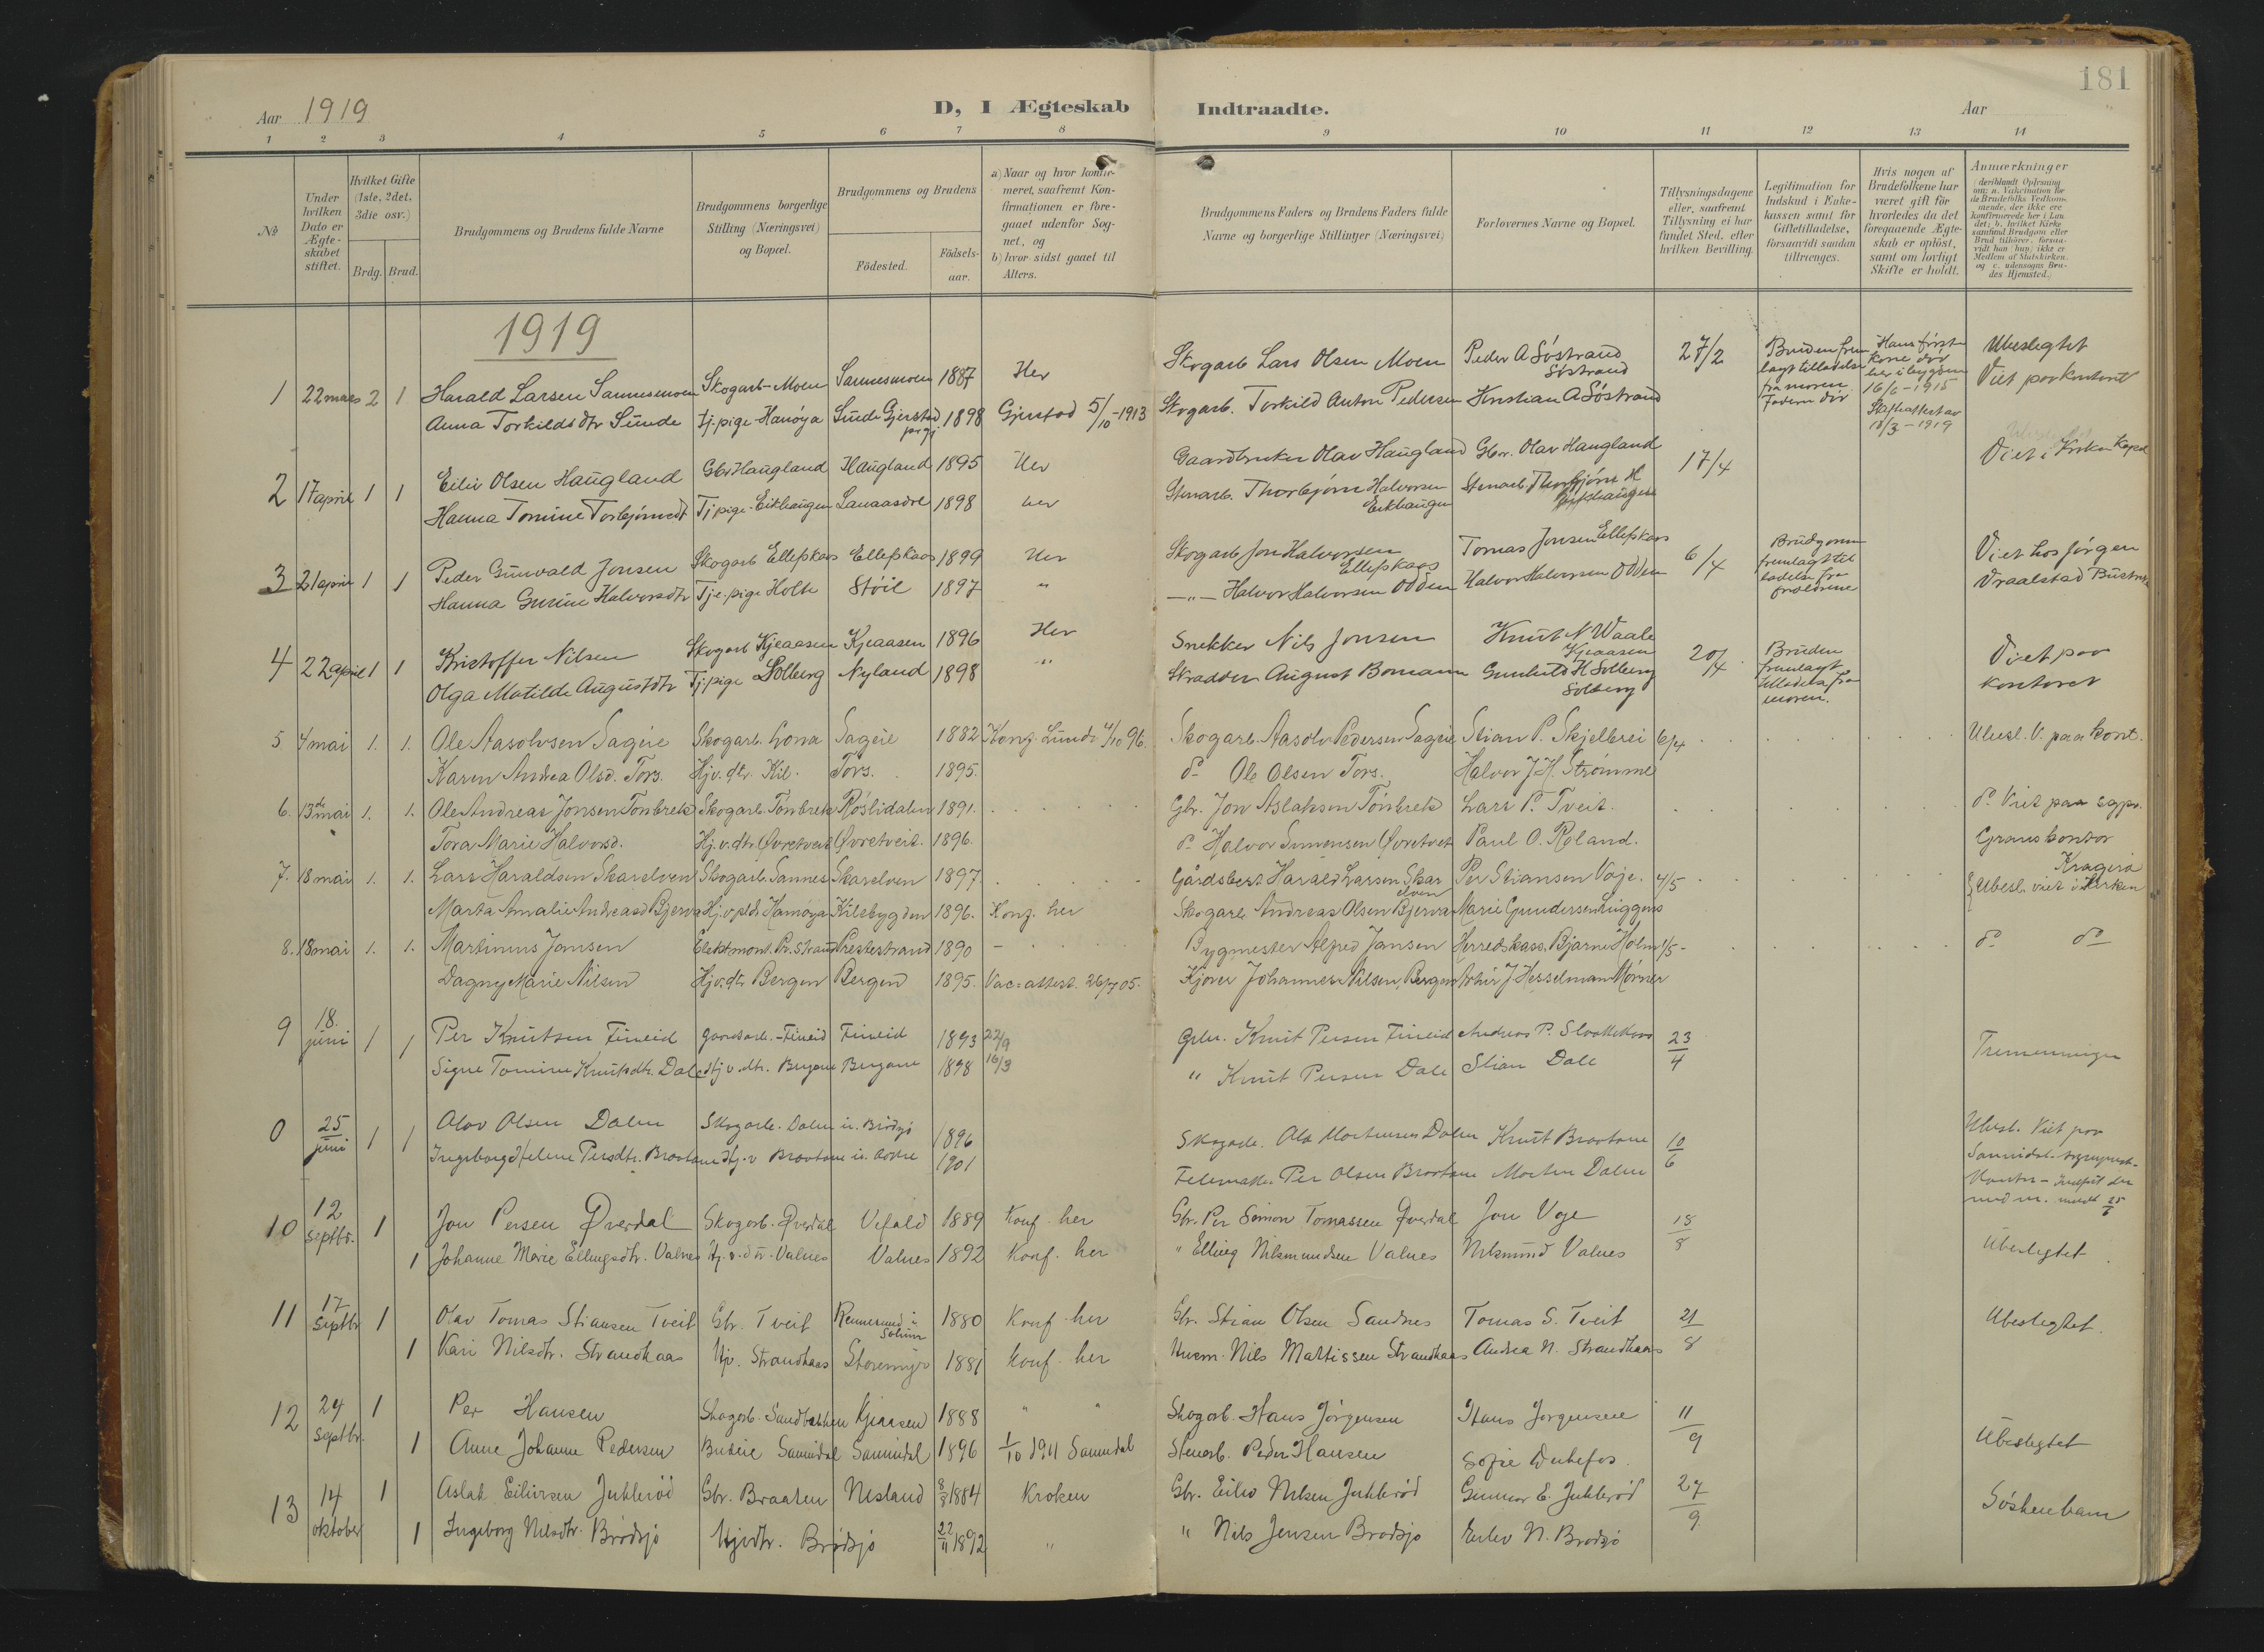 181
Aar 1919
D, I Ægteskab Indtraadte.
Aar
1 2 3 4 5 6 7 8 9 10 11 12 13 14
No
Under hvilken Dato er Ægteskabet stiftet.
Hvilket Gifte (1ste, 2det, 3die osv.)
Brdg. Brud.
Brudgommens og Brudens fulde Navne
Brudgommens borgerlige Stilling (Næringsvei) og Bopæl.
Brudgommens og Brudens
Fødested.
Fødselsaar.
a) Naar og hvor konfirmeret, saafremt Konfirmationen er foregaaet udenfor Sognet, og
b) hvor sidst gaaet til Alters.
Brudgommens Faders og Brudens Faders fulde Navne og borgerlige Stillinger (Næringsvei)
Forlovernes Navne og Bopæl.
Tillysningsdagene eller, saafremt Tillysning ei har fundet Sted, efter hvilken Bevilling.
Legitimation for Indskud i Enkekassen samt for Giftetilladelse, forsaavidt saadan tiltrænges.
Hvis nogen af Brudefolkene har været gift før hvorledes da det foregaaende Ægteskab er opløst, samt om lovligt Skifte er holdt.
Anmærkninger (deriblandt Oplysning om: a. Vakcination for de Brudefolks Vedkommende, der ikke ere konfirmerede her i Landet; b. hvilket Kirkesamfund Brudgom eller Brud tilhører, forsaavidt han (hun) ikke er Medlem af Statskirken, og c. udensogns Brudes Hjemsted.)
1919
1 22 mars 2 1 Harald Larsen Sannesmoen Skogarb- Moen Sannesmoen 1887 Her Skogarb Lars Olsen Moen Peder A Søstrand Søstrand 27/2 Bruden frem lagt tilladelse fra moren. Fadern død Hans første kone død her i bygden 16/6 - 1915 Skifteattest av 18/3 - 1919 Ubeslegtet Viet paa kontoret
Anna Torkildsdtr Sunde tj.pige - Hamøya Sunde Gjerstad prgj. 1898 Gjerstad 5/10-1913 Skogarb. Torkild Anton Pedersen Kristian A Søstrand
2 17 april 1 1 Eiliv Olsen Haugland Gbr Haugland Haugland 1895 Her Gaardbruker Olav Haugland Gbr. Olav Haugland 17/4 Viet i Kirken Kapel
Hanna Tomine Torbjørnsdt Tj pige - Eikhaugen Sanaasdre 1898 her Stenarb. Thorbjørn Halvorsen Eikhaugen Stenarb. Thorbjørn H Eikhaugen
3 21 april 1 1 Peder Gunvald Jonsen Skogarb Ellefskaas Ellefskaas 1899 Her Skogarb Jon Halvorsen Ellefskaas Tomas Jonsen Ellefskaas 6/4 Brudgomm fremlagt til ladelse fra foreldrene Viet hos Jørgen Vraalstad
Hanna Gurine Halvorsdtr Tje.pige Holte Støil 1897 " —"— Halvor Halvorsen Odden Halvor Halvorsen Odden
4 22 april 1 1 Kristoffer Nilsen Skogarb Kjeaasen Kjeaasen 1896 Her Snekker Nils Jonsen Knut N Waale Kjeaasen 20/4 Bruden fremlagt tilladelse fra moren. Viet paa kontoret
Olga Matilde Augustdtr Tj pige Solberg Nyland 1898 " Skradder August Bomann Gunhild K Solberg Solberg
5 4 mai 1. 1. Ole Aasolvsen Sageie Skogarb. Lona Sageie 1882 Konf. Lunde 4/10 96. Skogarb. Aasolv Pedersen Sageie Stian P. Skjelbrei 6/4 Ubesl. V. paa kont.
Karen Andrea Olsd. Tors. Hj.v.dtr. Kil. Tors. 1895. do Ole Olsen Tors. Halvor J. H. Strømme
6. 13de mai 1. 1. Ole Andreas Jonsen Tonbrek Skogarb. Tonbrek Røslidalen 1891. Gbr. Jon Aslaksen Tonbrek Lars P. Tveit. do. Viet paa sgpr. Grans kontor Kragerø
Tora Marie Halvorsd. Hj.v.dtr. Øvretveit Øvretveit. 1896. do Halvor Simensen Øvretveit Paul O. Roland.
7. 18 mai 1. 1. Lars Haraldsen Skarelven Skogarb. Sannes Skarelven 1897. Gårdsbest. Harald Larsen Skarelven Per Stiansen Voje. 4/5 Ubesl. viet i Kirken
Marta Amalie Andreasd Bjerva Hj.v.pld. Hamøya Kilsbygden 1896. Konf. her Skogarb Andreas Olsen Bjerva Marie Gundersen Luggens
8. 18 mai 1. 1. Martinius Jansen Elektmont. Pr. Strand Prestestrand 1890 - Bygmester Alfred Jansen Herredskass. Bjarne Holm 1/5 do do
Dagny Marie Nilsen Hj.v.dtr Bergen Bergen 1895. Vac=attest. 26/7 05. Kjører Johannes Nilsen, Bergen Arthur J. Hesselman Mørner
9 18. juni 1 1 Per Knutsen Fineid gaardarb. - Fineid Fineid 1893 22/9 Gbr. Knut Persen Fineid Andreas P. 23/4 Tremenninger
Signe Tomine Knutsdtr. Dale Hj v. dtr. Bergane Bergane 1898 16/3 " Knut Persen Dale Stian Dale
0 25 juni 1 1 Olav Olsen Dalen Skogarb. Dalen i Brødsjø 1896 Skogarb. Ole Mortensen Dalen Knut Braatane 10/6 Ubesl. Viet paa Sannidal sogneprest-kontor -
Ingeborg Helene Persdtr. Braatane Hj.v Braatane i. 1901 Per Olsen Braatane Morten Dalen
10 12 septbr. 1 Jon Persen Øverdal Skogarb. Øverdal Vefald 1889 Konf. her Gbr. Per Simon Tomassen Øverdal Jon Voje 18/8 Ubeslegtet
1 Johanne Marie Ellingsdtr. Valnes Hj.v.dtr. Valnes Valnes 1892 Konf. her " Elling Nilsmundsen Valnes Nilsmund Valnes
11 17 Septbr 1 Olav Tomas Stiansen Tveit Gbr. Tveit Rennesund i Solum 1880 Konf. her Gbr. Stian Olsen Sandnes Tomas S. Tveit 21/8 Ubeslegtet.
1 Kari Nilsdtr. Strandkaas Hj. Strandkaas Storemyr 1881 Konf. her Husm. Nils Mattissen Strandkaas Andrea N. Strandkaas
12 24 septbr. 1 Per Hansen Skogarb. Sandbakken Kjeaasen 1888 " " Skogarb. Hans Jørgensen Hans Jørgensen 11/9 Ubeslegtet
1 Anne Johanne Pedersen Budeie Sannidal Sannidal 1896 1/10 1911 Sannidal Stenarb. Peder Hansen Sofie Dubefos.
13 14 oktober 1 Aslak Eilivsen Juklerød Gbr. Braaten Nesland 8/8 1884 Kroken Gbr. Eiliv Nilsen Juklerød Gunnar E. Juklerød 27/9 Søskenbarn
1 Ingeborg Nilsdtr. Brødsjø Hjvdtr. Brødsjø 22/11 1892 " " Nils Jensen Brødsjø Eiliv N. Brødsjø